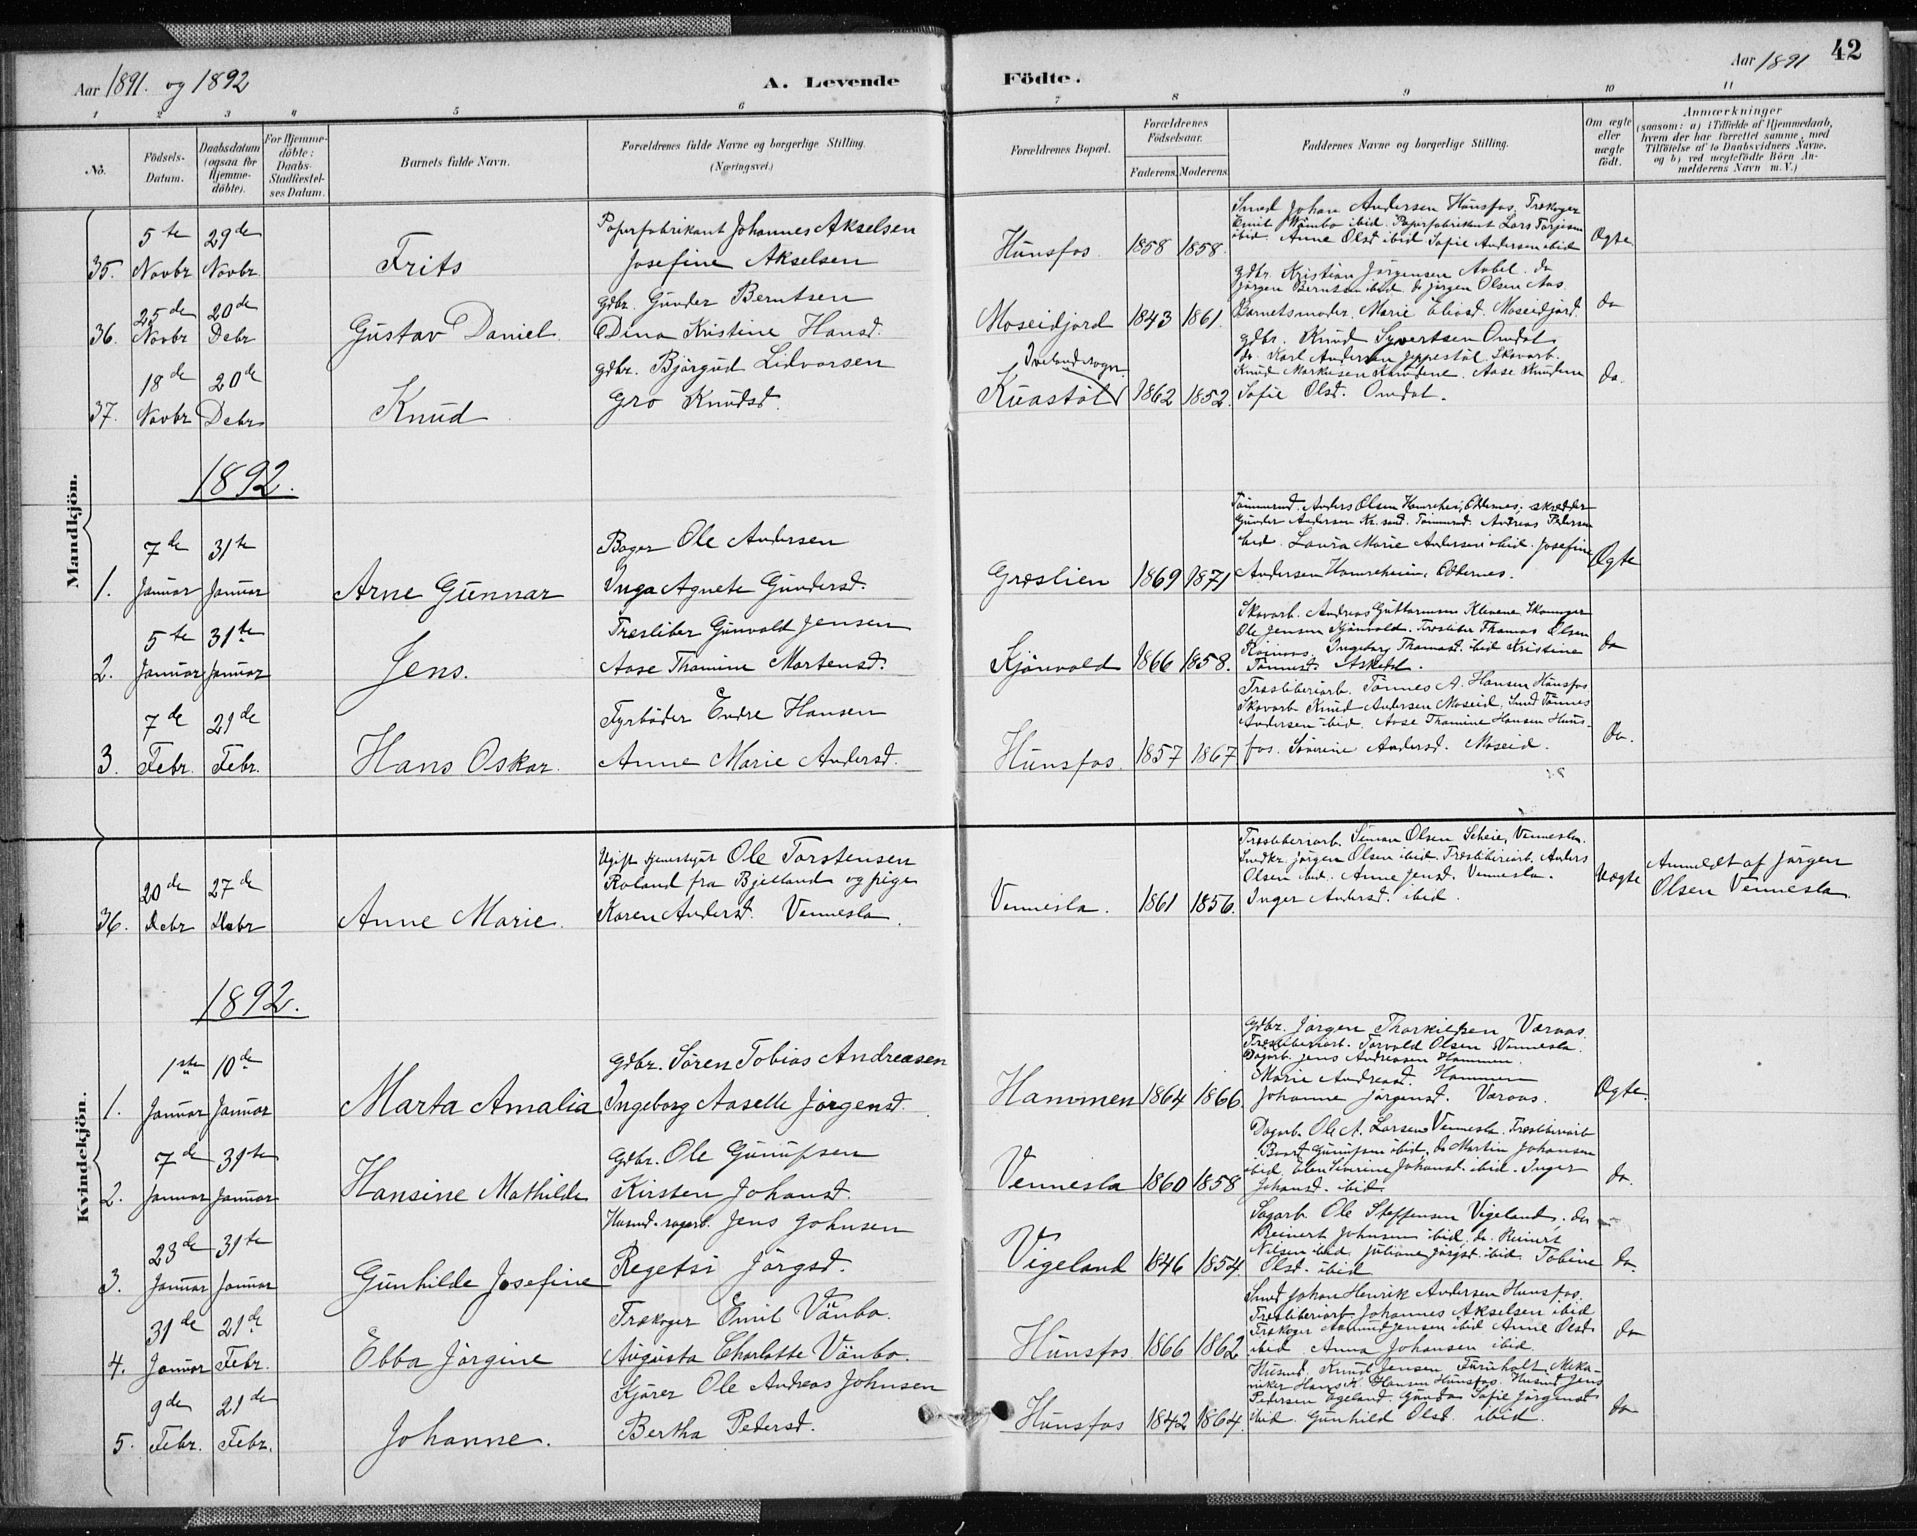 Aar 1891. og 1892
A. Levende
Födte.
Aar 1891
42
1 2 3 4 5 6 7 8 9 10 11
No.
Födsels-Datum.
Daabsdatum (ogsaa for Hjemme-döbte).
For Hjemme-döbte: Daabs-Stadfæstel-ses Datum.
Barnets fulde Navn.
Forældrenes fulde Navne og borgerlige Stilling. (Næringsvei.)
Forældrenes Bopæl.
Forældrenes Födselsaar.
Faderens. Moderens.
Faddernes Navne og borgerlige Stilling.
Om ægte eller uægte födt.
Anmærkninger (saasom: a) i Tilfælde af Hjemmedaab, hvem der har forrettet samme, med Tilföielse af to Daabsvidners Navne. og b) ved uægtefödte Börn An-melderens Navn m. V.)
Mandkjön.
35. 5te Novbr 29de Novbr. Frits
Papirfabrikant Johannes Akselsen
Josefine Akselsen
Hunsfos 1858 1858.
Smed Johan Andersen Hunsfos. Trækoger
Emil Wämbo ibid. Papirfabrikant Lars Torjesen
ibid. Anne Olsd ibid Sofie Andersen ibid
Ægte
36. 25de Novbr 20de Debr Gustav Daniel
gdbr. Gunder Berntsen
Dina Kristine Hansd.
Moseidjord 1843 1861.
gdbr. Kristian Jörgensen Aabel. do
Jörgen Berntsen ibid. do Jörgen Olsen Aas.
Barnetsmoder. Marie Eliasd. Moseidjord.
do
37. 18de Novbr 20de Debr Knud
gdbr. Björgud Lidvorsen
Gro Knudsd.
Ivelandsogn.
Kuastöl 1862 1852.
gdbr. Knud Syvertsen Omdal
do. Karl Andersen Jeppestöl. Skovarb.
Knud Markusen Aase Knudsen
Sofie Olsd. Omdal.
do.
1892.
1. 7de Januar 31te Januar Arne Gunnar
Bager Ole Andersen
Inga Agnete Gundersd.
Græslien 1869 1871
Tömmermd. Anders Olsen Hamreheien, Oddernes, skrædder
Gunder Andersen Kr.sand. Tömmermd. Andreas Pedersen
ibid. Laura Marie Andersen ibid. Josefine
Andersen Hamreheien, Oddernes.
Ægte
2. 5te Januar 31te Januar Jens.
Træsliber Gunvald Jensen
Aase Thomine Mortensd.
Kjönvold 1866 1858.
Skovarb. Andreas Guttormsen Klevene Skomager
Ole Jensen Kjönvold. Træsliber Thomas Olsen
Ingeborg Thomasd. ibid Kristine
Tönnesd. Askedal.
do
3. 7de Febr. 21de Febr. Hans Oskar.
Fyrböder Endre Hansen
Anne Marie Andersd.
Hunsfos. 1857 1867
Træsliberiarb. Tönnes A. Hansen Hunsfos
Skovarb Knud Andersen Moseid, Smed Tönnes
Andersen ibid. Aase Thomine Hansen Huns-
fos. Severine Andersd. Moseid.
do.
Kvindekjön.
36. 20de Debr 27de Debr Anne Marie.
Ugift tjenestgut Ole Torstensen
Roland fra Bjelland og pige
Karen Andersd. Vennesla.
Vennesla. 1861 1856.
Træsliberiarb. Simon Olsen Scheie, Vennesla.
Smedkr. Jörgen Olsen ibid. Træsliberiarb. Anders
Olsen ibid. Anne Jensd. Vennesla.
Inger Andersd. ibid.
Uægte
Anmeldt af Jörgen
Olsen Vennesla.
1892.
1. 1ste Januar 10de Januar Marta Amalia
gdbr. Sören Tobias Andreasen
Ingeborg Aaselle Jörgensd.
Hammen 1864 1866.
gdbr. Jörgen Thorkilsen Varaas.
Træsliberiarb. Torvald Olsen Vennesla.
Dagarb. Jens Andreasen Hammen.
Marie Andreasd. Hammen
Johanne Jörgensd. Varaas.
Ægte.
2. 7de Januar 31te Januar Hansine Mathilde
Gdbr. Ole Gunufsen
Kirsten Johansd.
Vennesla 1860 1858
Dagarb. Ole A. Larsen Vennesla. Træsliberiarb
Gunufsen ibid, do Martin Johansen
ibid. Elen Severine Johansd. ibid. Inger
Johansd. ibid
do.
3. 23de Januar 31te Januar Gunhilde Josefine
Husmd. sagarb. Jens Johnsen
Regetsi Jörgsd.
Vigeland 1846 1854.
Sagarb. Ole Steffensen Vigeland. do
Reinert Johnsen ibid. do. Reinert
Nilsen ibid. Juliane Jörgsd. ibid. Tobine
Olsd. ibid
do.
4. 31de Januar 21de Febr. Ebba Jörgine
Trækoger Emil Vänbo.
Augusta Charlotte Vänbo.
Hunsfos 1866 1862
Smed Johan Henrik Andersen Hunsfos.
Træsliberiarb Johannes Akselsen ibid
Trækoger Aamund Jensen ibid Anne Olsd.
ibid. Anna Johansen ibid.
do
5. 9de Febr. 21de Febr. Johanne.
Kjörer Ole Andreas Johnsen
Bertha Pedersd.
Hunsfos 1842 1864.
Husmd. Knud Jensen Furuholt, Meka-
niker Hans K. Hansen Hunsfos. Husmd Jens
Pedersen Egeland. Gunda Sofie Jörgensd
ibid. Gunhild Olsd. ibid.
do